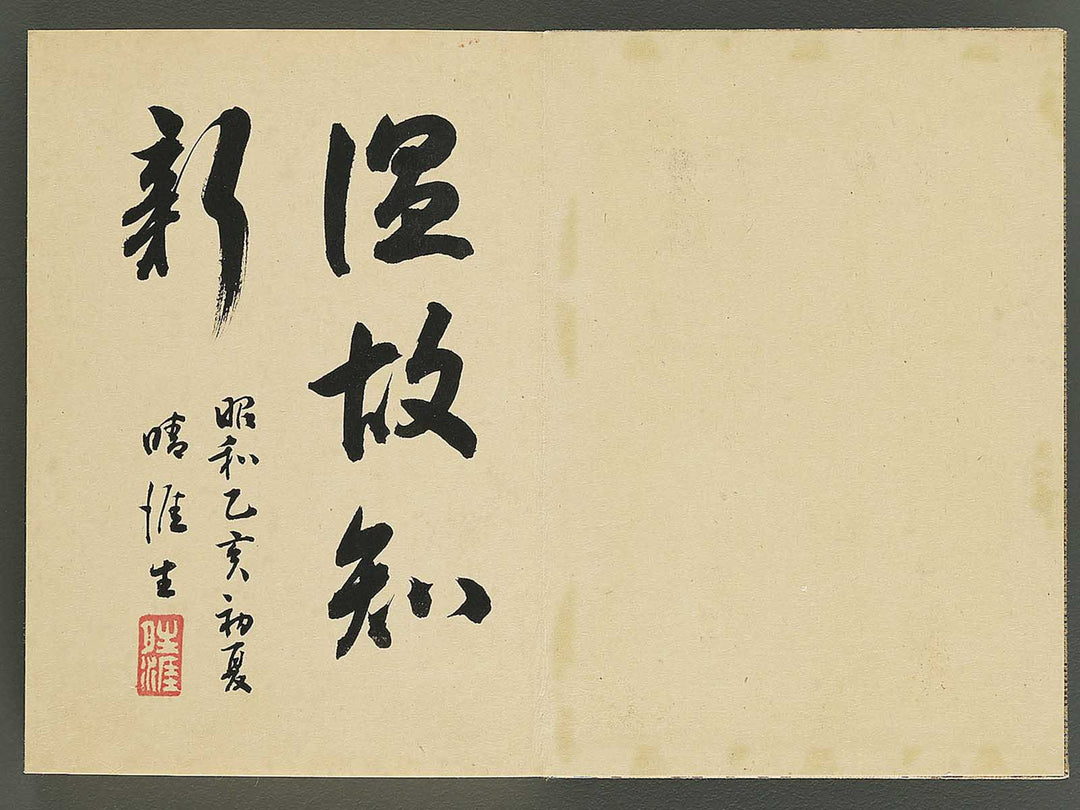 温故知
新
昭和乙亥初夏
晴涯生
晴涯